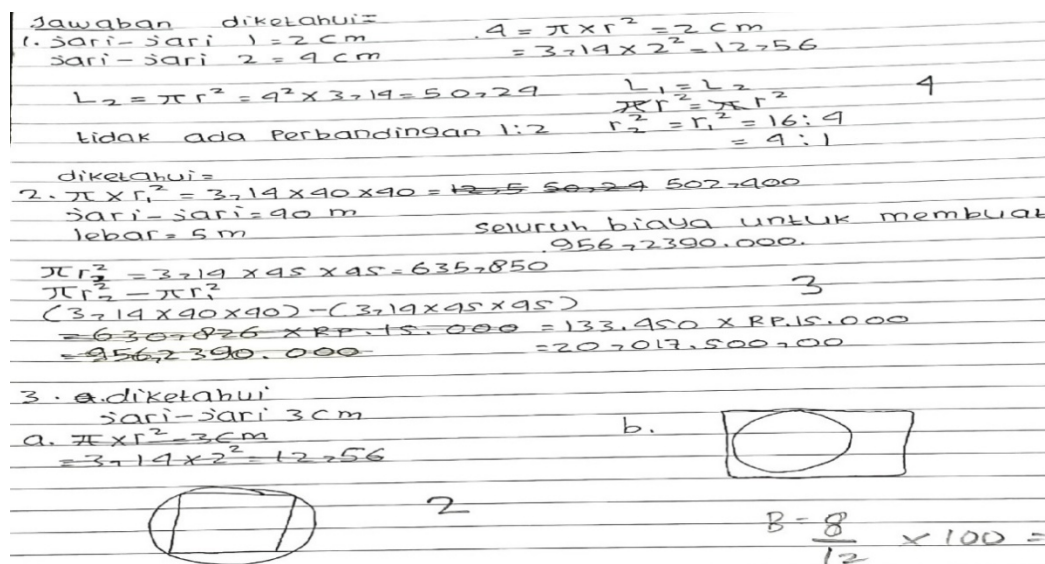 Jawaban diketahui=
1. Jari-jari 1 = 2 cm
Jari-jari 2 = 4 cm
.4 = π x r² = 2 cm
= 3,14 x 2² = 12,56
L₂ = πr² = 4² x 3,14 = 50,24
tidak ada Perbandingan 1:2
L₁ = L₂
πr² = πr²
r₂² = r₁² = 16 : 4
= 4 : 1
4
diketahui=
2. π x r₁² = 3,14 x 40 x 40 = 12,5 50,24 502,400
Jari-jari = 40 m
lebar = 5 m
seluruh biaya untuk membuat
.956,2390.000.
πr₂² = 3,14 x 45 x 45 = 635,850
πr₂² - πr₁²
(3,14 x 40 x 40) - (3,14 x 45 x 45)
= 630,826 x RP.15.000 = 133.450 x RP.15.000
= 956,2390.000
= 20,017.500,00
3
3. a. diketahui
Jari-jari 3 cm
a. π x r² = 3 cm
= 3,14 x 2² = 12,56
b.
2
B = 8/12 x 100 =